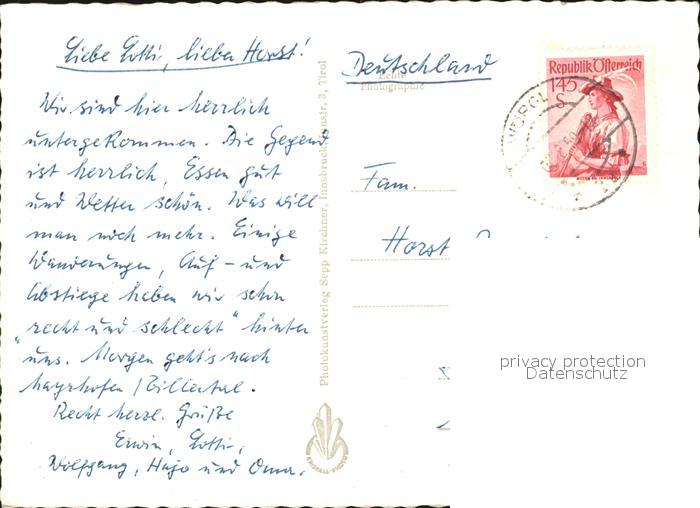 Liebe Lotti, lieber Horst!
Wir sind hier herrlich
untergekommen. Die Gegend
ist herrlich, Essen gut
und Wetter schön. Was will
man noch mehr. Einige
Wanderungen, Auf- und
Abstiege haben wir schon
„recht und schlecht" hinter
uns. Morgen geht's nach
Mayrhofen / Zillertal.
Recht herzl. Grüße
Erwin, Lotti,
Wolfgang, Hajo und Oma.
Photokunstverlag Sepp Kirchner, Innsbruckerstr. 3, Tirol
KRISTALL-PHOTO
Deutschland
Echte
Photographie
Fam.
Horst
Republik Österreich
1.45
S
WÖRGL
privacy protection
Datenschutz